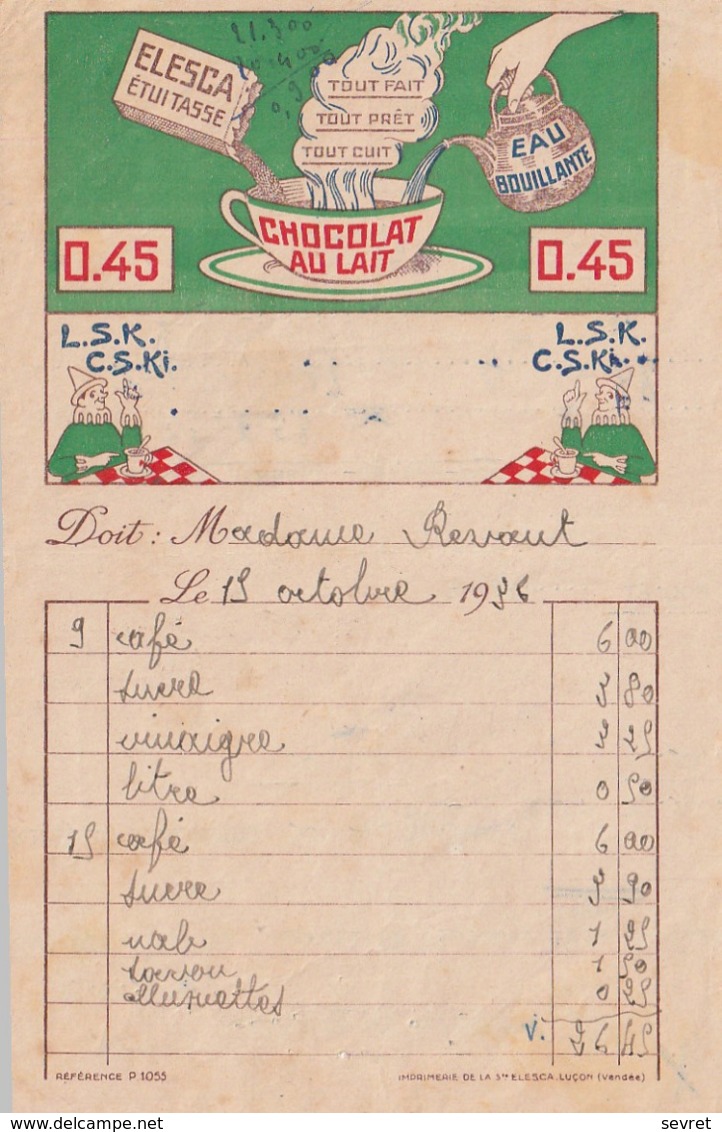 21.300
20.400
0,900
ELESCA
ÉTUI TASSE
TOUT FAIT
TOUT PRÊT
TOUT CUIT
EAU
BOUILLANTE
CHOCOLAT
AU LAIT
0.45 0.45
L.S.K. L.S.K.
C.S.Ki. C.S.Ki.
Doit : Madame Revaut
Le 15 octobre 1936
9 café 6 00
sucre 3 80
vinaigre 3 25
litre 0 50
15 café 6 00
sucre 3 90
1 25
savon 1 50
allumettes 0 25
V. 26 45
RÉFÉRENCE P 1055 IMPRIMERIE DE LA Sté ELESCA. LUÇON (Vendée)
sevret